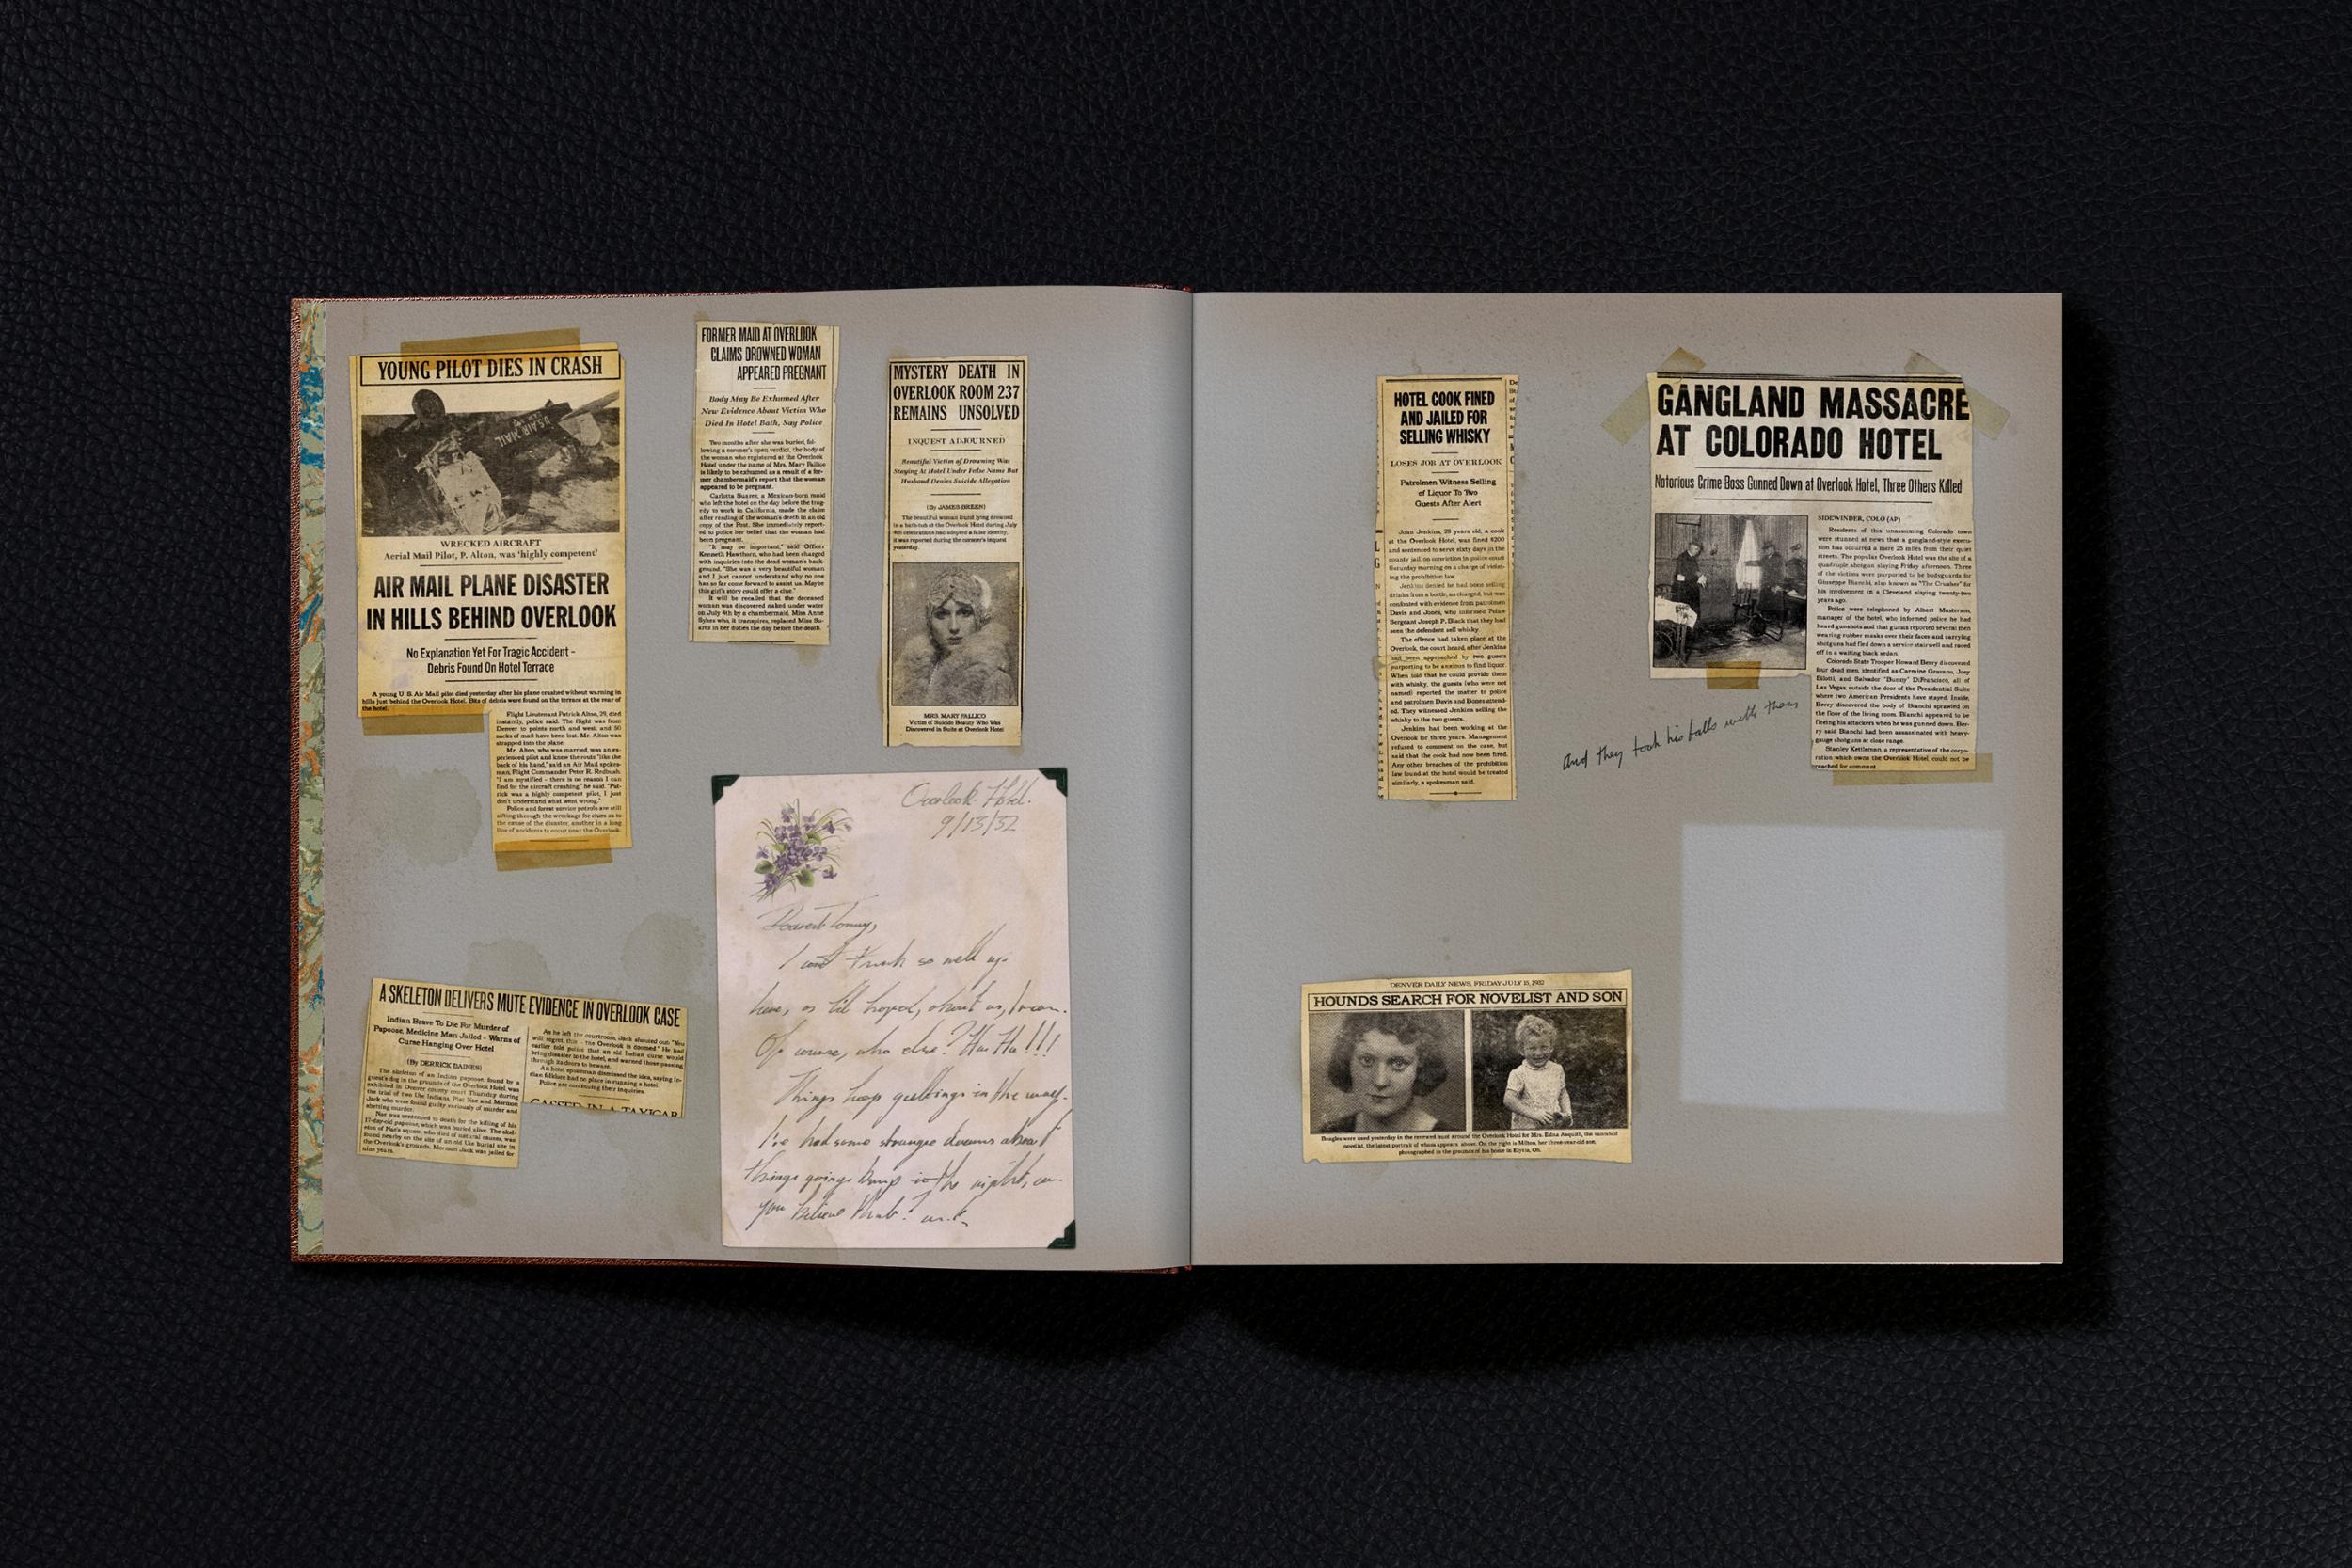 YOUNG PILOT DIES IN CRASH
U.S. AIR MAIL
WRECKED AIRCRAFT
Aerial Mail Pilot, P. Alton, was 'highly competent'
AIR MAIL PLANE DISASTER
IN HILLS BEHIND OVERLOOK
No Explanation Yet For Tragic Accident –
Debris Found On Hotel Terrace
A young U. S. Air Mail pilot died yesterday after his plane crashed without warning in
hills just behind the Overlook Hotel. Bits of debris were found on terrace at the rear of
the hotel.
Flight Lieutenant Patrick Alton, 29, died
instantly, police said. The flight was from
Denver to points north and west, and 50
sacks of mail have been lost. Mr. Alton was
strapped into the plane.
Mr. Alton, who was married, was an ex-
perienced pilot and knew the route "like the
back of his hand," said an Air Mail spokes-
man, Flight Commander Peter R. Redbush.
"I am mystified – there is no reason I can
find for the aircraft crashing," he said. "Pat-
rick was a highly competent pilot, I just
don't understand what went wrong."
Police and forest service patrols are still
sifting through the wreckage for clues as to
the cause of the disaster, another in a long
line of accidents to occur near the Overlook.
FORMER MAID AT OVERLOOK
CLAIMS DROWNED WOMAN
APPEARED PREGNANT
Body May Be Exhumed After
New Evidence About Victim Who
Died In Hotel Bath, Say Police
Two months after she was buried, fol-
lowing a coroner's open verdict, the body of
the woman who registered at the Overlook
Hotel under the name of Mrs. Mary Fallico
is likely to be exhumed as a result of a for-
mer chambermaid's report that the woman
appeared to be pregnant.
Carlotta Suarez, a Mexican-born maid
who left the hotel on the day before the trag-
edy to work in California, made the claim
after reading of the woman's death in an old
copy of the Post. She immediately report-
ed to police her belief that the woman had
been pregnant.
"It may be important," said Officer
Kenneth Hawthorn, who had been charged
with inquiries into the dead woman's back-
ground. "She was a very beautiful woman
and I just cannot understand why no one
has so far come forward to assist us. Maybe
this girl's story could offer a clue."
It will be recalled that the deceased
woman was discovered naked under water
on July 4th by a chambermaid, Miss Anne
Sykes who, it transpires, replaced Miss Su-
arez in her duties the day before the death.
MYSTERY DEATH IN
OVERLOOK ROOM 237
REMAINS UNSOLVED
INQUEST ADJOURNED
Beautiful Victim of Drowning Was
Staying At Hotel Under False Name But
Husband Denies Suicide Allegation
(By JAMES GREEN)
The beautiful woman found lying drowned
in a bath-tub at the Overlook Hotel during July
4th celebrations had adopted a false identity,
it was reported during the coroner's inquest
yesterday.
MRS. MARY FALLICO
Victim of Suicide Beauty Who Was
Discovered in Suite at Overlook Hotel
A SKELETON DELIVERS MUTE EVIDENCE IN OVERLOOK CASE
Indian Brave To Die For Murder of
Papoose, Medicine Man Jailed – Warns of
Curse Hanging Over Hotel
(By DERRICK BAINES)
The skeleton of an Indian papoose, found by a
guest's dog in the grounds of the Overlook Hotel, was
exhibited in Denver county court Thursday during
the trial of two Ute Indians, and Mormon
Jack who were found guilty variously of murder and
abetting murder.
was sentenced to death for the killing of his
17-day-old papoose, which was buried alive. The skel-
eton of squaw, who died of natural causes, was
found nearby on the site of an old Ute burial site in
the Overlook's grounds. Mormon Jack was jailed for
nine years.
As he left the courtroom, Jack shouted out: "You
will regret this – the Overlook is doomed." He had
earlier told police that an old Indian curse would
bring disaster to the hotel, and warned those passing
through its doors to beware.
An hotel spokesman dismissed the idea, saying In-
dian folklore had no place in running a hotel.
Police are continuing their inquiries.
GASSED IN A TAXICAB
Overlook Hotel.
9/13/32
Dearest Tommy,
I can't think so well up
here, as I'd hoped, about us, I mean.
Of course, who else? Ha Ha!!!
Things keep getting in the way.
I've had some strange dreams about
things going bump in the night, can
you believe that?
HOTEL COOK FINED
AND JAILED FOR
SELLING WHISKY
LOSES JOB AT OVERLOOK
Patrolmen Witness Selling
of Liquor To Two
Guests After Alert
John Jenkins, 28 years old, a cook
at the Overlook Hotel, was fined $200
and sentenced to serve sixty days in the
county jail, on conviction in police court
Saturday morning on a charge of violat-
ing the prohibition law.
Jenkins denied he had been selling
drinks from a bottle, as charged, but was
confronted with evidence from patrolmen
Davis and Jones, who informed Police
Sergeant Joseph P. Black that they had
seen the defendant sell whisky.
The offence had taken place at the
Overlook, the court heard, after Jenkins
had been approached by two guests
purporting to be anxious to find liquor.
When told that he could provide them
with whisky, the guests (who were not
named) reported the matter to police
and patrolmen Davis and Bones attend-
ed. They witnessed Jenkins selling the
whisky to the two guests.
Jenkins had been working at the
Overlook for three years. Management
refused to comment on the case, but
said that the cook had now been fired.
Any other breaches of the prohibition
law found at the hotel would be treated
similarly, a spokesman said.
GANGLAND MASSACRE
AT COLORADO HOTEL
Notorious Crime Boss Gunned Down at Overlook Hotel, Three Others Killed
SIDEWINDER, COLO (AP)
Residents of this unassuming Colorado town
were stunned at news that a gangland-style execu-
tion has occurred a mere 25 miles from their quiet
streets. The popular Overlook Hotel was the site of a
quadruple shotgun slaying Friday afternoon. Three
of the victims were purported to be bodyguards for
Giuseppe Bianchi, also known as "The Crusher" for
his involvement in a Cleveland slaying twenty-two
years ago.
Police were telephoned by Albert Masterson,
manager of the hotel, who informed police he had
heard gunshots and that guests reported several men
wearing rubber masks over their faces and carrying
shotguns had fled down a service stairwell and raced
off in a waiting black sedan.
Colorado State Trooper Howard Berry discovered
four dead men, identified as Carmine Graziano, Joey
Bilotti, and Salvador "Bunny" DiFrancisco, all of
Las Vegas, outside the door of the Presidential Suite
where two American Presidents have stayed. Inside,
Berry discovered the body of Bianchi sprawled on
the floor of the living room. Bianchi appeared to be
fleeing his attackers when he was gunned down. Ber-
ry said Bianchi had been assassinated with heavy-
gauge shotguns at close range.
Stanley Kettleman, a representative of the corpo-
ration which owns the Overlook Hotel, could not be
reached for comment.
and they took his balls with them
DENVER DAILY NEWS, FRIDAY JULY 15, 1932
HOUNDS SEARCH FOR NOVELIST AND SON
Beagles were used yesterday in the renewed hunt around the Overlook Hotel for Mrs. Edna Asquith, the vanished
novelist, the latest portrait of whom appears above. On the right is Milton, her three-year-old son,
photographed in the grounds of his home in Elyria, Oh.